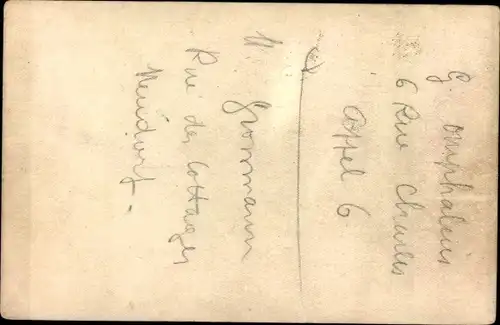 G. Omphalius
6 Rue Charles
Appel 6
M. Grossmann
Rue des Cottages
Neudorf.